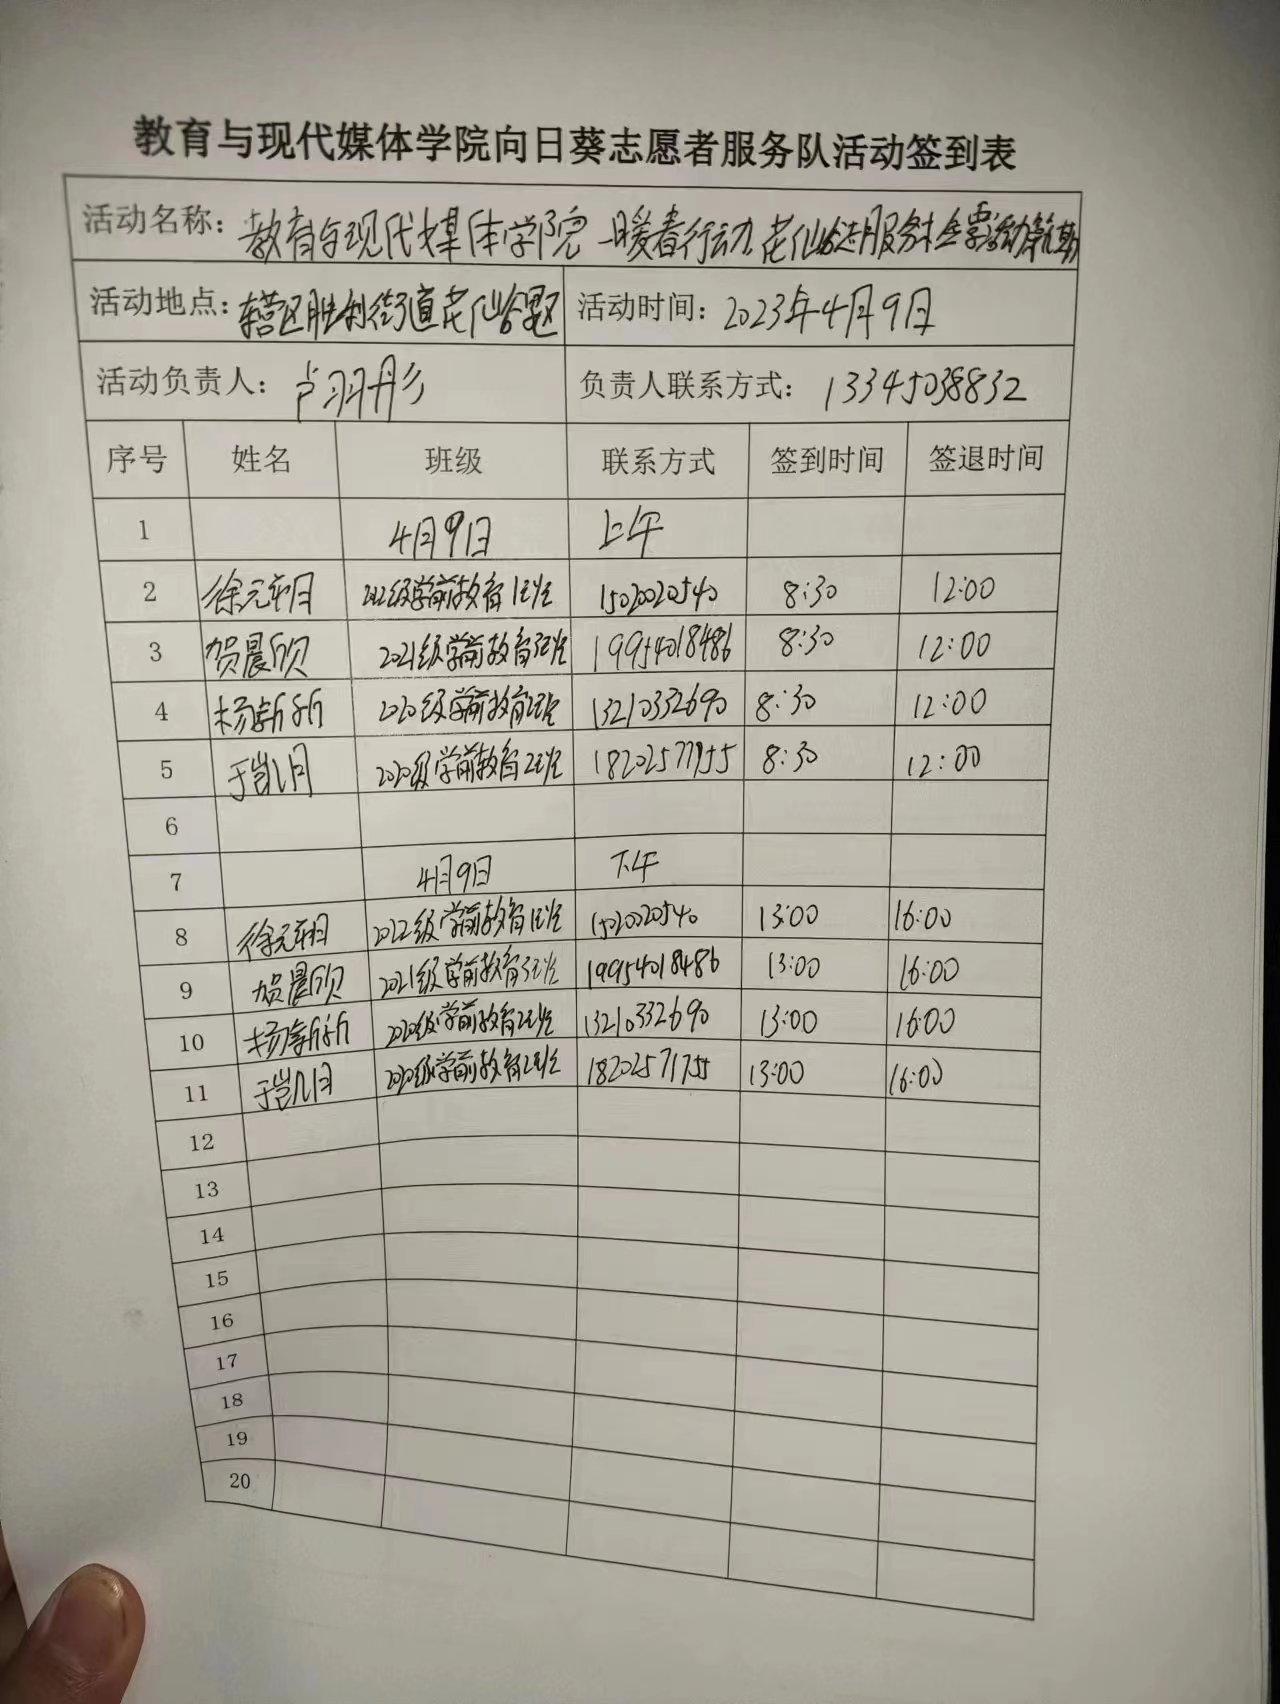 教育与现代媒体学院向日葵志愿者服务队活动签到表
活动名称：教育与现代媒体学院—暖春行动 花仙谷志愿服务
活动地点：辖区胜利街道花仙谷景区 活动时间：2023年4月9日
活动负责人：卢羽彤 负责人联系方式：13345038832
序号 姓名 班级 联系方式 签到时间 签退时间
1 4月9日 上午
2 徐元朝 2022级学前教育1班 1502002540 8:30 12:00
3 贺晨欣 2021级学前教育3班 19954018486 8:30 12:00
4 杨新新 2020级学前教育2班 13210332690 8:30 12:00
5 于凯月 2020级学前教育2班 18202577955 8:30 12:00
6
7 4月9日 下午
8 徐元朝 2022级学前教育1班 1502002540 13:00 16:00
9 贺晨欣 2021级学前教育3班 19954018486 13:00 16:00
10 杨新新 2020级学前教育2班 13210332690 13:00 16:00
11 于凯月 2020级学前教育2班 18202571755 13:00 16:00
12
13
14
15
16
17
18
19
20